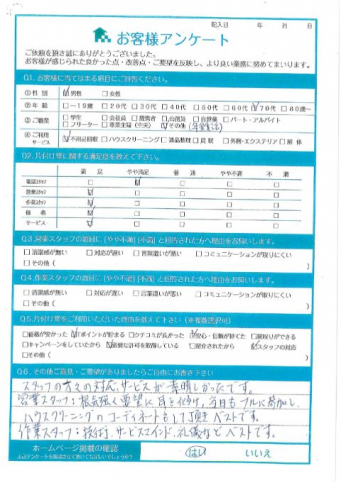 記入日　年　月　日
お客様アンケート
ご依頼を頂き誠にありがとうございました。
お客様が感じられた良かった点・改善点・ご要望を反映し、より良い業務に努めてまいります。
Q1. お客様に当てはまる項目にご回答ください。
①性 別 ☑男性 □女性
②年 齢 □~19歳 □20代 □30代 □40代 □50代 □60代 ☑70代 □80歳~
③ご職業 □学生 □会社員 □公務員 □自営業 □パート・アルバイト
□フリーター □専業主婦(主夫) ☑その他(年金生活)
④ご利用サービス ☑不用品回収 □ハウスクリーニング □遺品整理 □買取 □外構・エクステリア □解体
Q2. 片付け堂に関する満足度を教えて下さい。
満足 やや満足 普通 やや不満 不満
電話スタッフ
営業スタッフ
作業スタッフ
価格
サービス
Q3. 営業スタッフの項目に【やや不満】【不満】と回答された方へ理由をお伺いします。
□清潔感が無い □対応が遅い □言葉遣いが悪い □コミュニケーションが取りにくい
□その他( )
Q4. 作業スタッフの項目に【やや不満】【不満】と回答された方へ理由をお伺いします。
□清潔感が無い □対応が遅い □言葉遣いが悪い □コミュニケーションが取りにくい
□その他( )
Q5. 片付け堂をご利用いただいた理由を教えて下さい(※複数選択可)
□価格が安かった ☑ポイントが貯まる □クチコミが良かった ☑安心・信頼が持てた □親族がすすめ
□キャンペーンをしていたから □必要な許可を取得している □紹介されたから ☑スタッフの対応
□その他( )
Q6. その他ご意見・ご要望がありましたらご自由にお書き下さい
スタッフの方々の対応、サービスが素晴しかったです。
営業スタッフ:根気強く要望に耳を傾け、当日もフルに参加し、
ハウスクリーニングのコーディネートもして頂きベストです。
作業スタッフ:技術、サービスマインド、礼儀などベストです。
ホームページ掲載の確認
はい いいえ